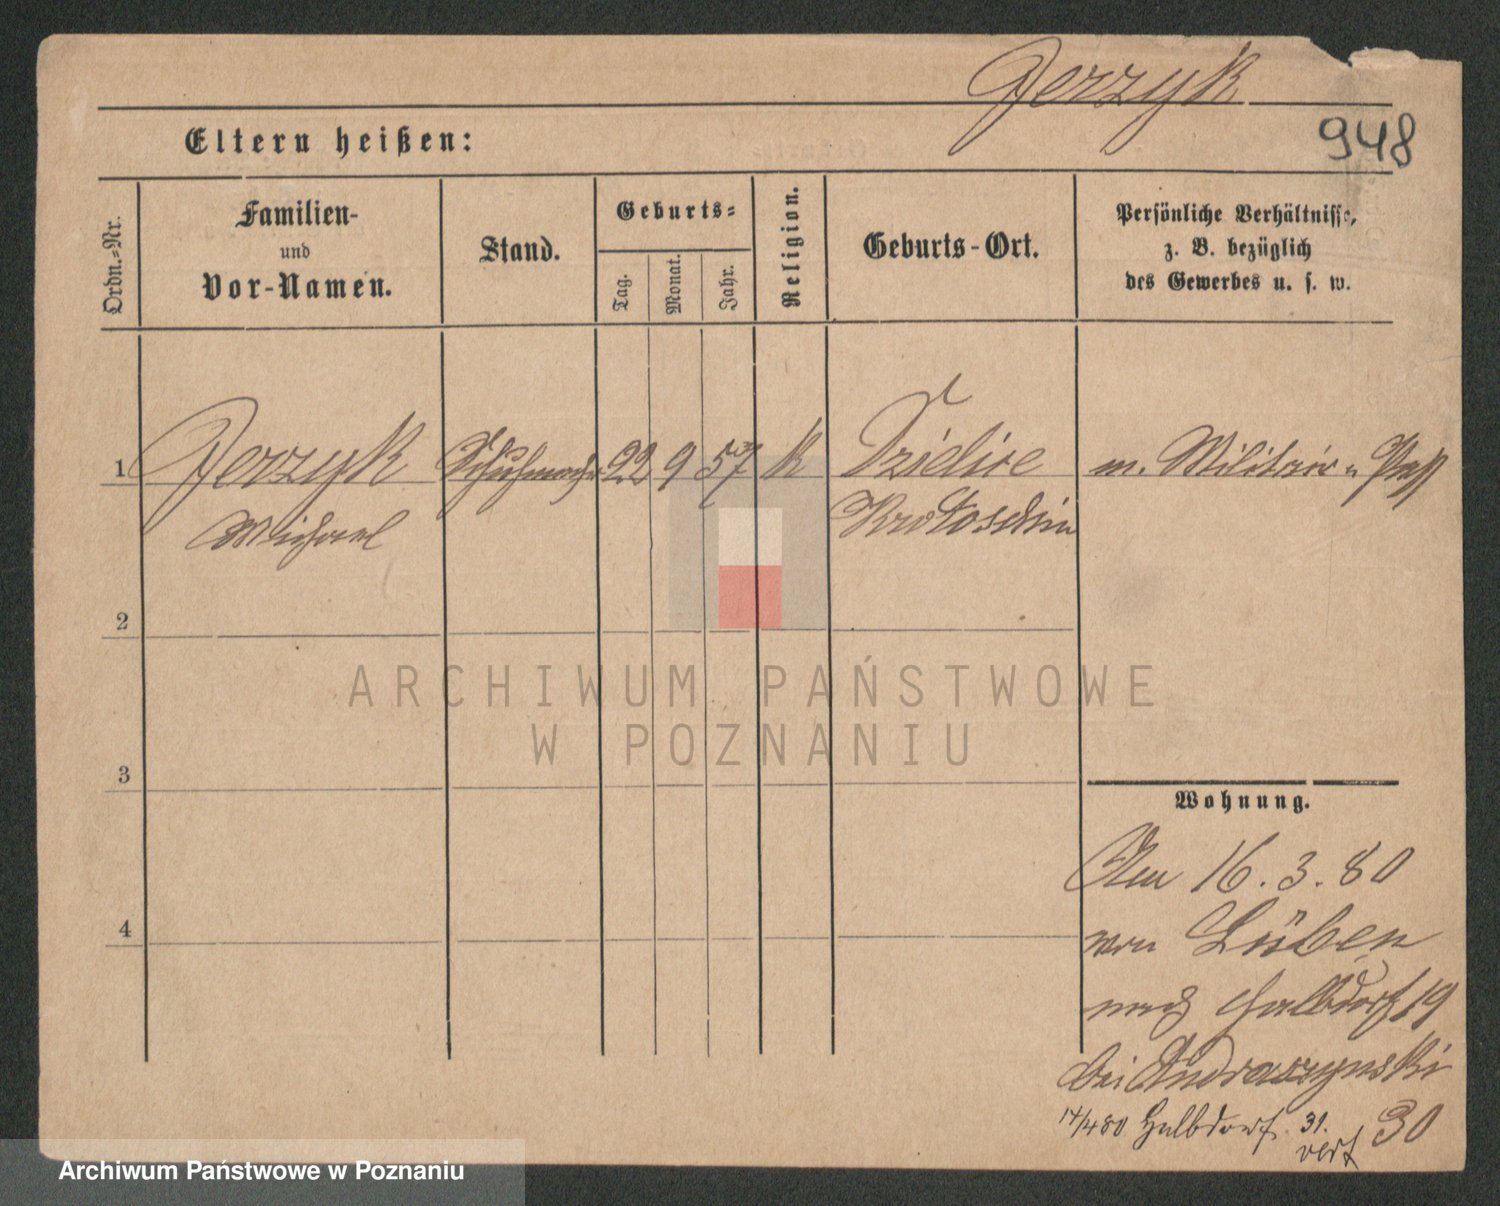 Jerzyk
948
Eltern heißen:
Ordn.-Nr.
Familien-
und
Vor-Namen.
Stand.
Geburts-
Tag.
Monat.
Jahr.
Religion.
Geburts-Ort.
Persönliche Verhältnisse,
z. B. bezüglich
des Gewerbes u. s. w.
1 Jerzyk Schuhmacher 22 9 57 k m. Militär u Paß
Michael Krotoschin
2
ARCHIWUM PAŃSTWOWE
W POZNANIU
3
Wohnung.
16.3.80
4
von Lüben
nach Halbdorf 19
bei Andraszynski
30
17/4 80 Halbdorf 31.
Archiwum Państwowe w Poznaniu